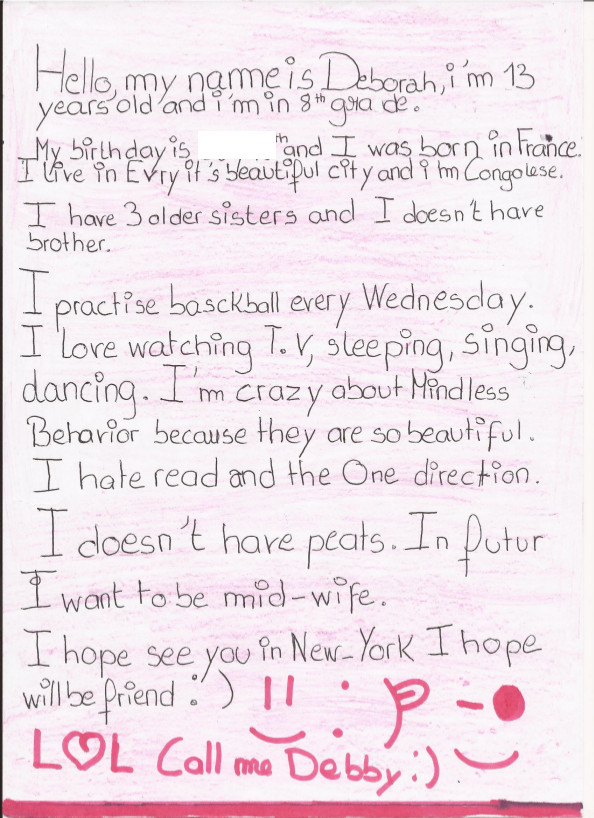 Hello, my name is Deborah, i'm 13
years old and i'm in 8th grade.
My birthday is th and I was born in France.
I live in Evry it's beautiful city and i'm Congolese.
I have 3 older sisters and I doesn't have
brother.
I practise basckball every Wednesday.
I love watching T.V, sleeping, singing,
dancing. I'm crazy about Mindless
Behavior because they are so beautiful.
I hate read and the One direction.
I doesn't have peats. In futur
I want to be mid-wife.
I hope see you in New-York I hope
will be friend :')
LOL Call me Debby :)